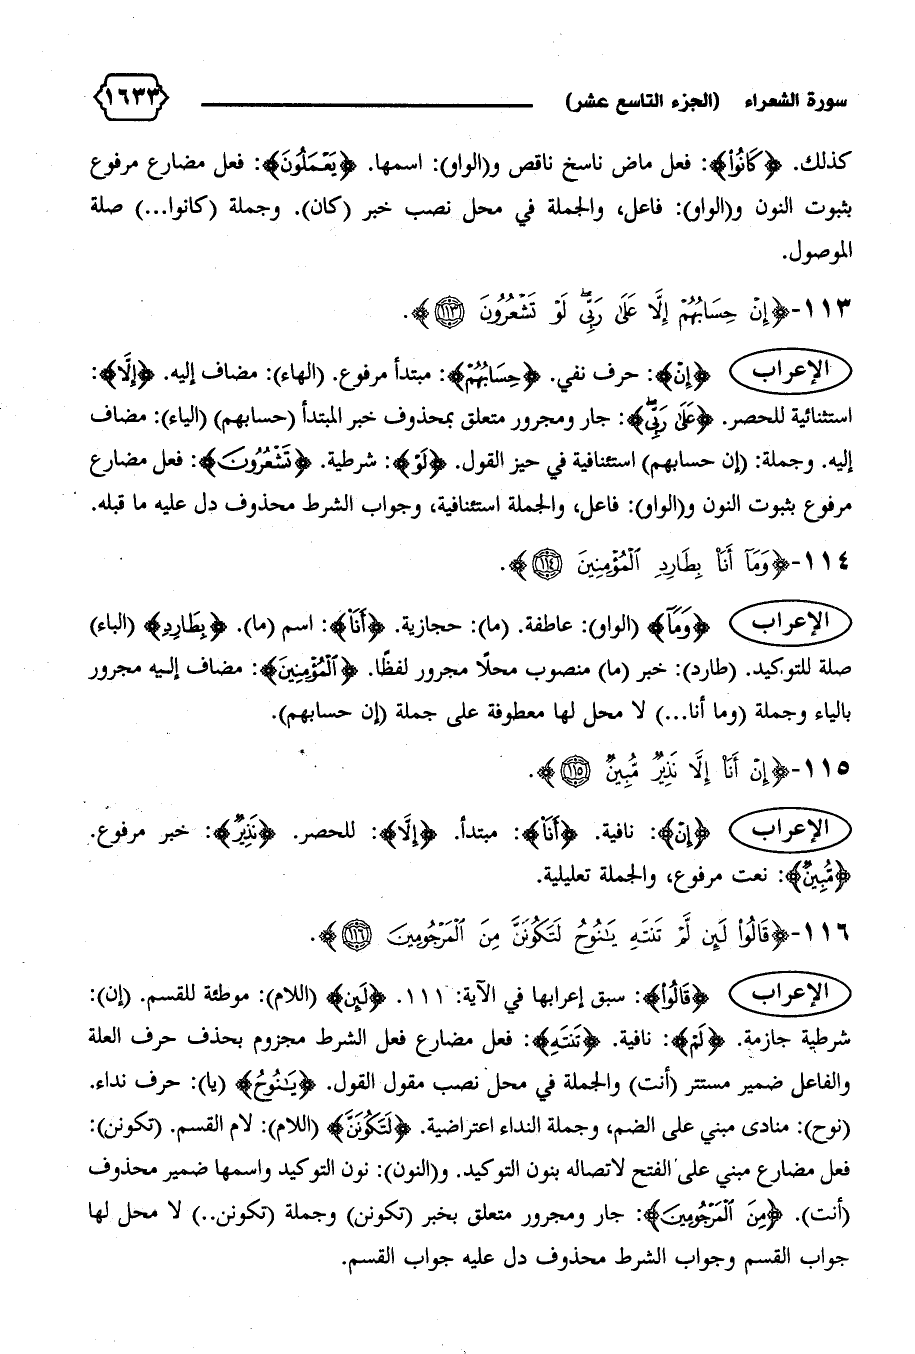 سورة الشعراء (الجزء التاسع عشر) ١٦٣٣
كذلك. ﴿كَانُوا۟﴾: فعل ماض ناسخ ناقص و(الواو): اسمها. ﴿يَعْمَلُونَ﴾: فعل مضارع مرفوع
بثبوت النون و(الواو): فاعل، والجملة في محل نصب خبر (كان). وجملة (كانوا...) صلة
الموصول.
١١٣-﴿إِنْ حِسَابُهُمْ إِلَّا عَلَىٰ رَبِّى ۖ لَوْ تَشْعُرُونَ ١١٣﴾.
الإعراب ﴿إِنْ﴾: حرف نفي. ﴿حِسَابُهُمْ﴾: مبتدأ مرفوع. (الهاء): مضاف إليه. ﴿إِلَّا﴾:
استثنائية للحصر. ﴿عَلَىٰ رَبِّى ۖ﴾: جار ومجرور متعلق بمحذوف خبر المبتدأ (حسابهم) (الياء): مضاف
إليه. وجملة: (إن حسابهم) استئنافية في حيز القول. ﴿لَوْ﴾: شرطية. ﴿تَشْعُرُونَ﴾: فعل مضارع
مرفوع بثبوت النون و(الواو): فاعل، والجملة استئنافية، وجواب الشرط محذوف دل عليه ما قبله.
١١٤-﴿وَمَآ أَنَا۠ بِطَارِدِ ٱلْمُؤْمِنِينَ ١١٤﴾.
الإعراب ﴿وَمَآ﴾ (الواو): عاطفة. (ما): حجازية. ﴿أَنَا۠﴾: اسم (ما). ﴿بِطَارِدِ﴾ (الباء)
صلة للتوكيد. (طارد): خبر (ما) منصوب محلًا مجرور لفظًا. ﴿ٱلْمُؤْمِنِينَ﴾: مضاف إليه مجرور
بالياء وجملة (وما أنا...) لا محل لها معطوفة على جملة (إن حسابهم).
١١٥-﴿إِنْ أَنَا۠ إِلَّا نَذِيرٌ مُّبِينٌ ١١٥﴾.
الإعراب ﴿إِنْ﴾: نافية. ﴿أَنَا۠﴾: مبتدأ. ﴿إِلَّا﴾: للحصر. ﴿نَذِيرٌ﴾: خبر مرفوع.
﴿مُّبِينٌ﴾: نعت مرفوع، والجملة تعليلية.
١١٦-﴿قَالُوا۟ لَئِن لَّمْ تَنتَهِ يَٰنُوحُ لَتَكُونَنَّ مِنَ ٱلْمَرْجُومِينَ ١١٦﴾.
الإعراب ﴿قَالُوا۟﴾: سبق إعرابها في الآية: ١١١. ﴿لَئِن﴾ (اللام): موطئة للقسم. (إن):
شرطية جازمة. ﴿لَمْ﴾: نافية. ﴿تَنتَهِ﴾: فعل مضارع فعل الشرط مجزوم بحذف حرف العلة
والفاعل ضمير مستتر (أنت) والجملة في محل نصب مقول القول. ﴿يَٰنُوحُ﴾ (يا): حرف نداء.
(نوح): منادى مبني على الضم، وجملة النداء اعتراضية. ﴿لَتَكُونَنَّ﴾ (اللام): لام القسم. (تكونن):
فعل مضارع مبني على الفتح لاتصاله بنون التوكيد. و(النون): نون التوكيد واسمها ضمير محذوف
(أنت). ﴿مِنَ ٱلْمَرْجُومِينَ﴾: جار ومجرور متعلق بخبر (تكونن) وجملة (تكونن..) لا محل لها
جواب القسم وجواب الشرط محذوف دل عليه جواب القسم.